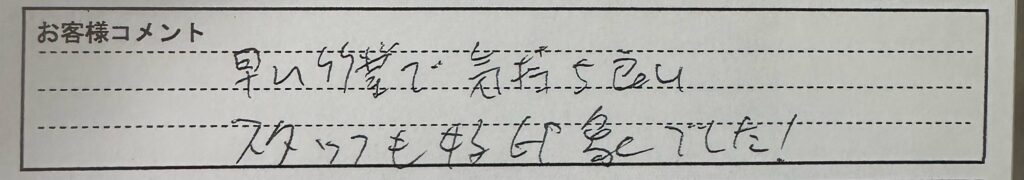 お客様コメント
早い作業で気持ち良い
スタッフも好印象でした!